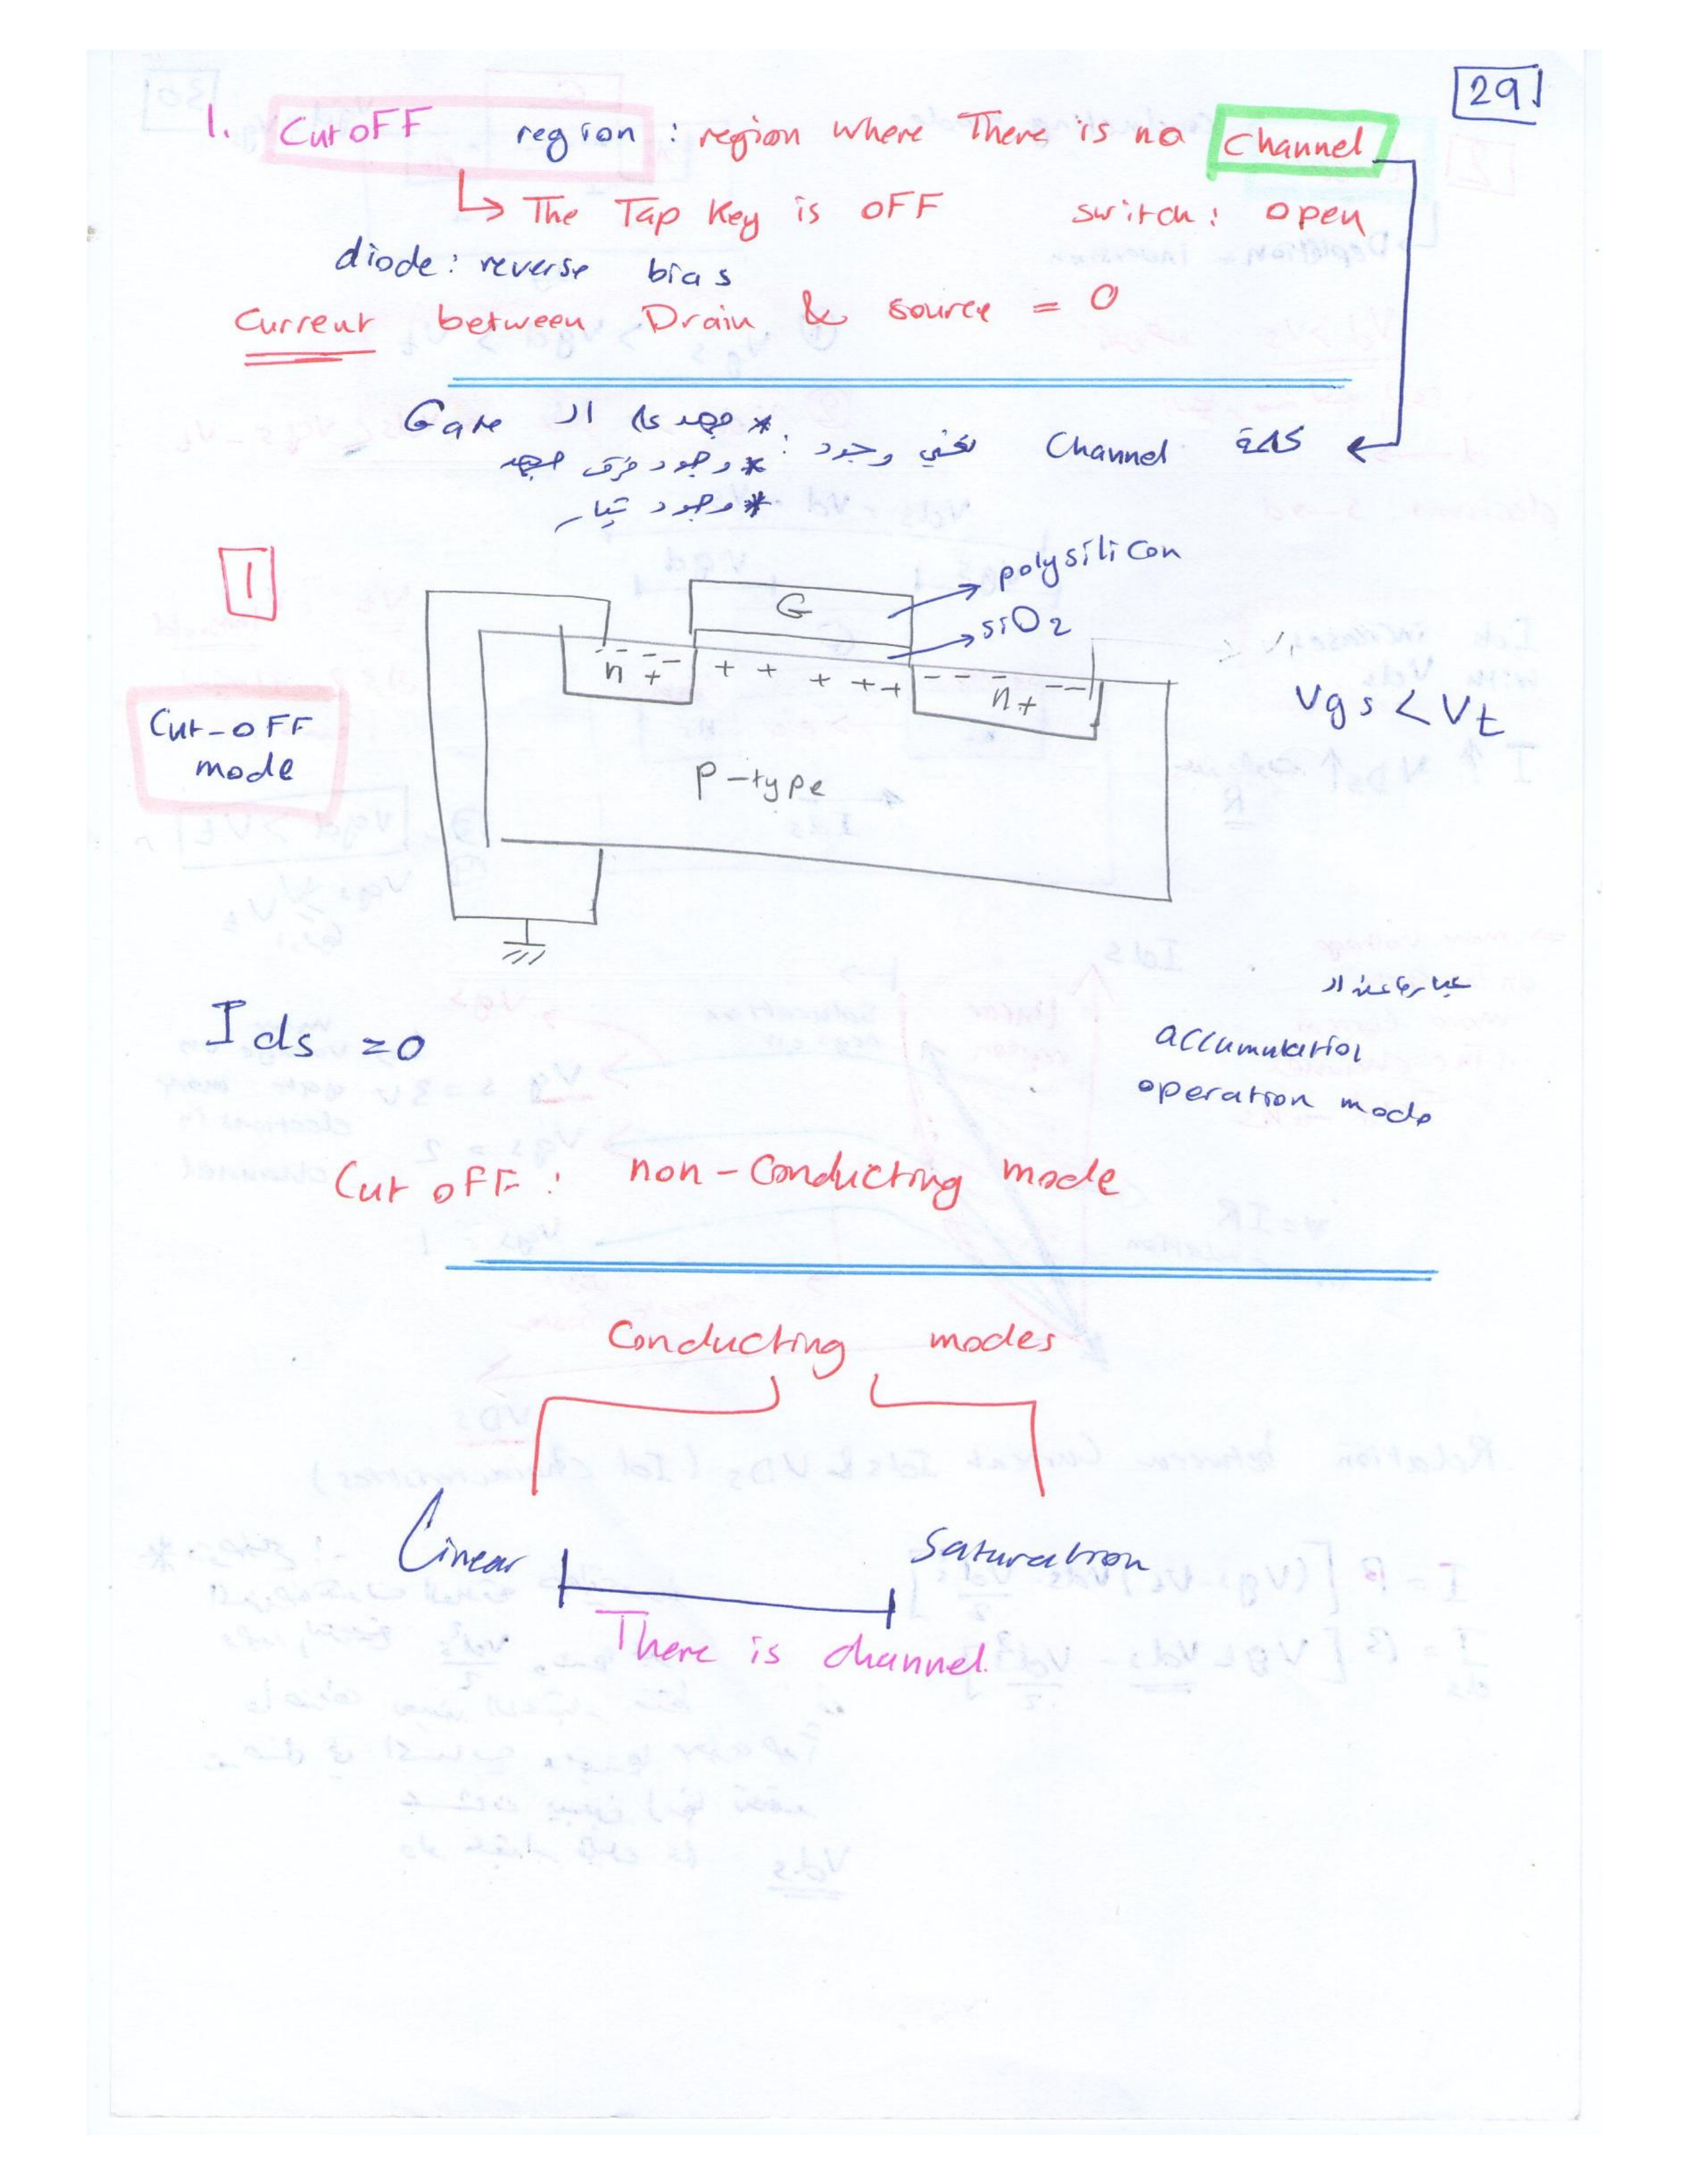 29
1. CutoFF region : region where There is no Channel
↳ The Tap Key is oFF switch: open
diode: reverse bias
Current between Drain & source = 0
كلمة Channel تعني وجود : * جهد على ال Gate
* وجود فرق جهد
* وجود تيار
1
polysilicon
G
siO2
- - - - - - -
n + + + + + + n+
Cut-oFF
mode
Vgs < Vt
P-type
عبارة عن ال
Ids = 0
accumulation
operation mode
Cut oFF: non-Conducting mode
Conducting modes
Linear Saturation
There is channel.